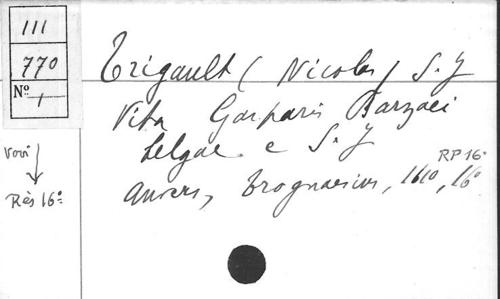 III
770
N° 1
Trigault (Nicolas) S.J
Vita Gasparis Barzaei
belgae e S.J
RP16°
Anvers, Trognaesius, 1610, 16°
Voir
Rés 16°